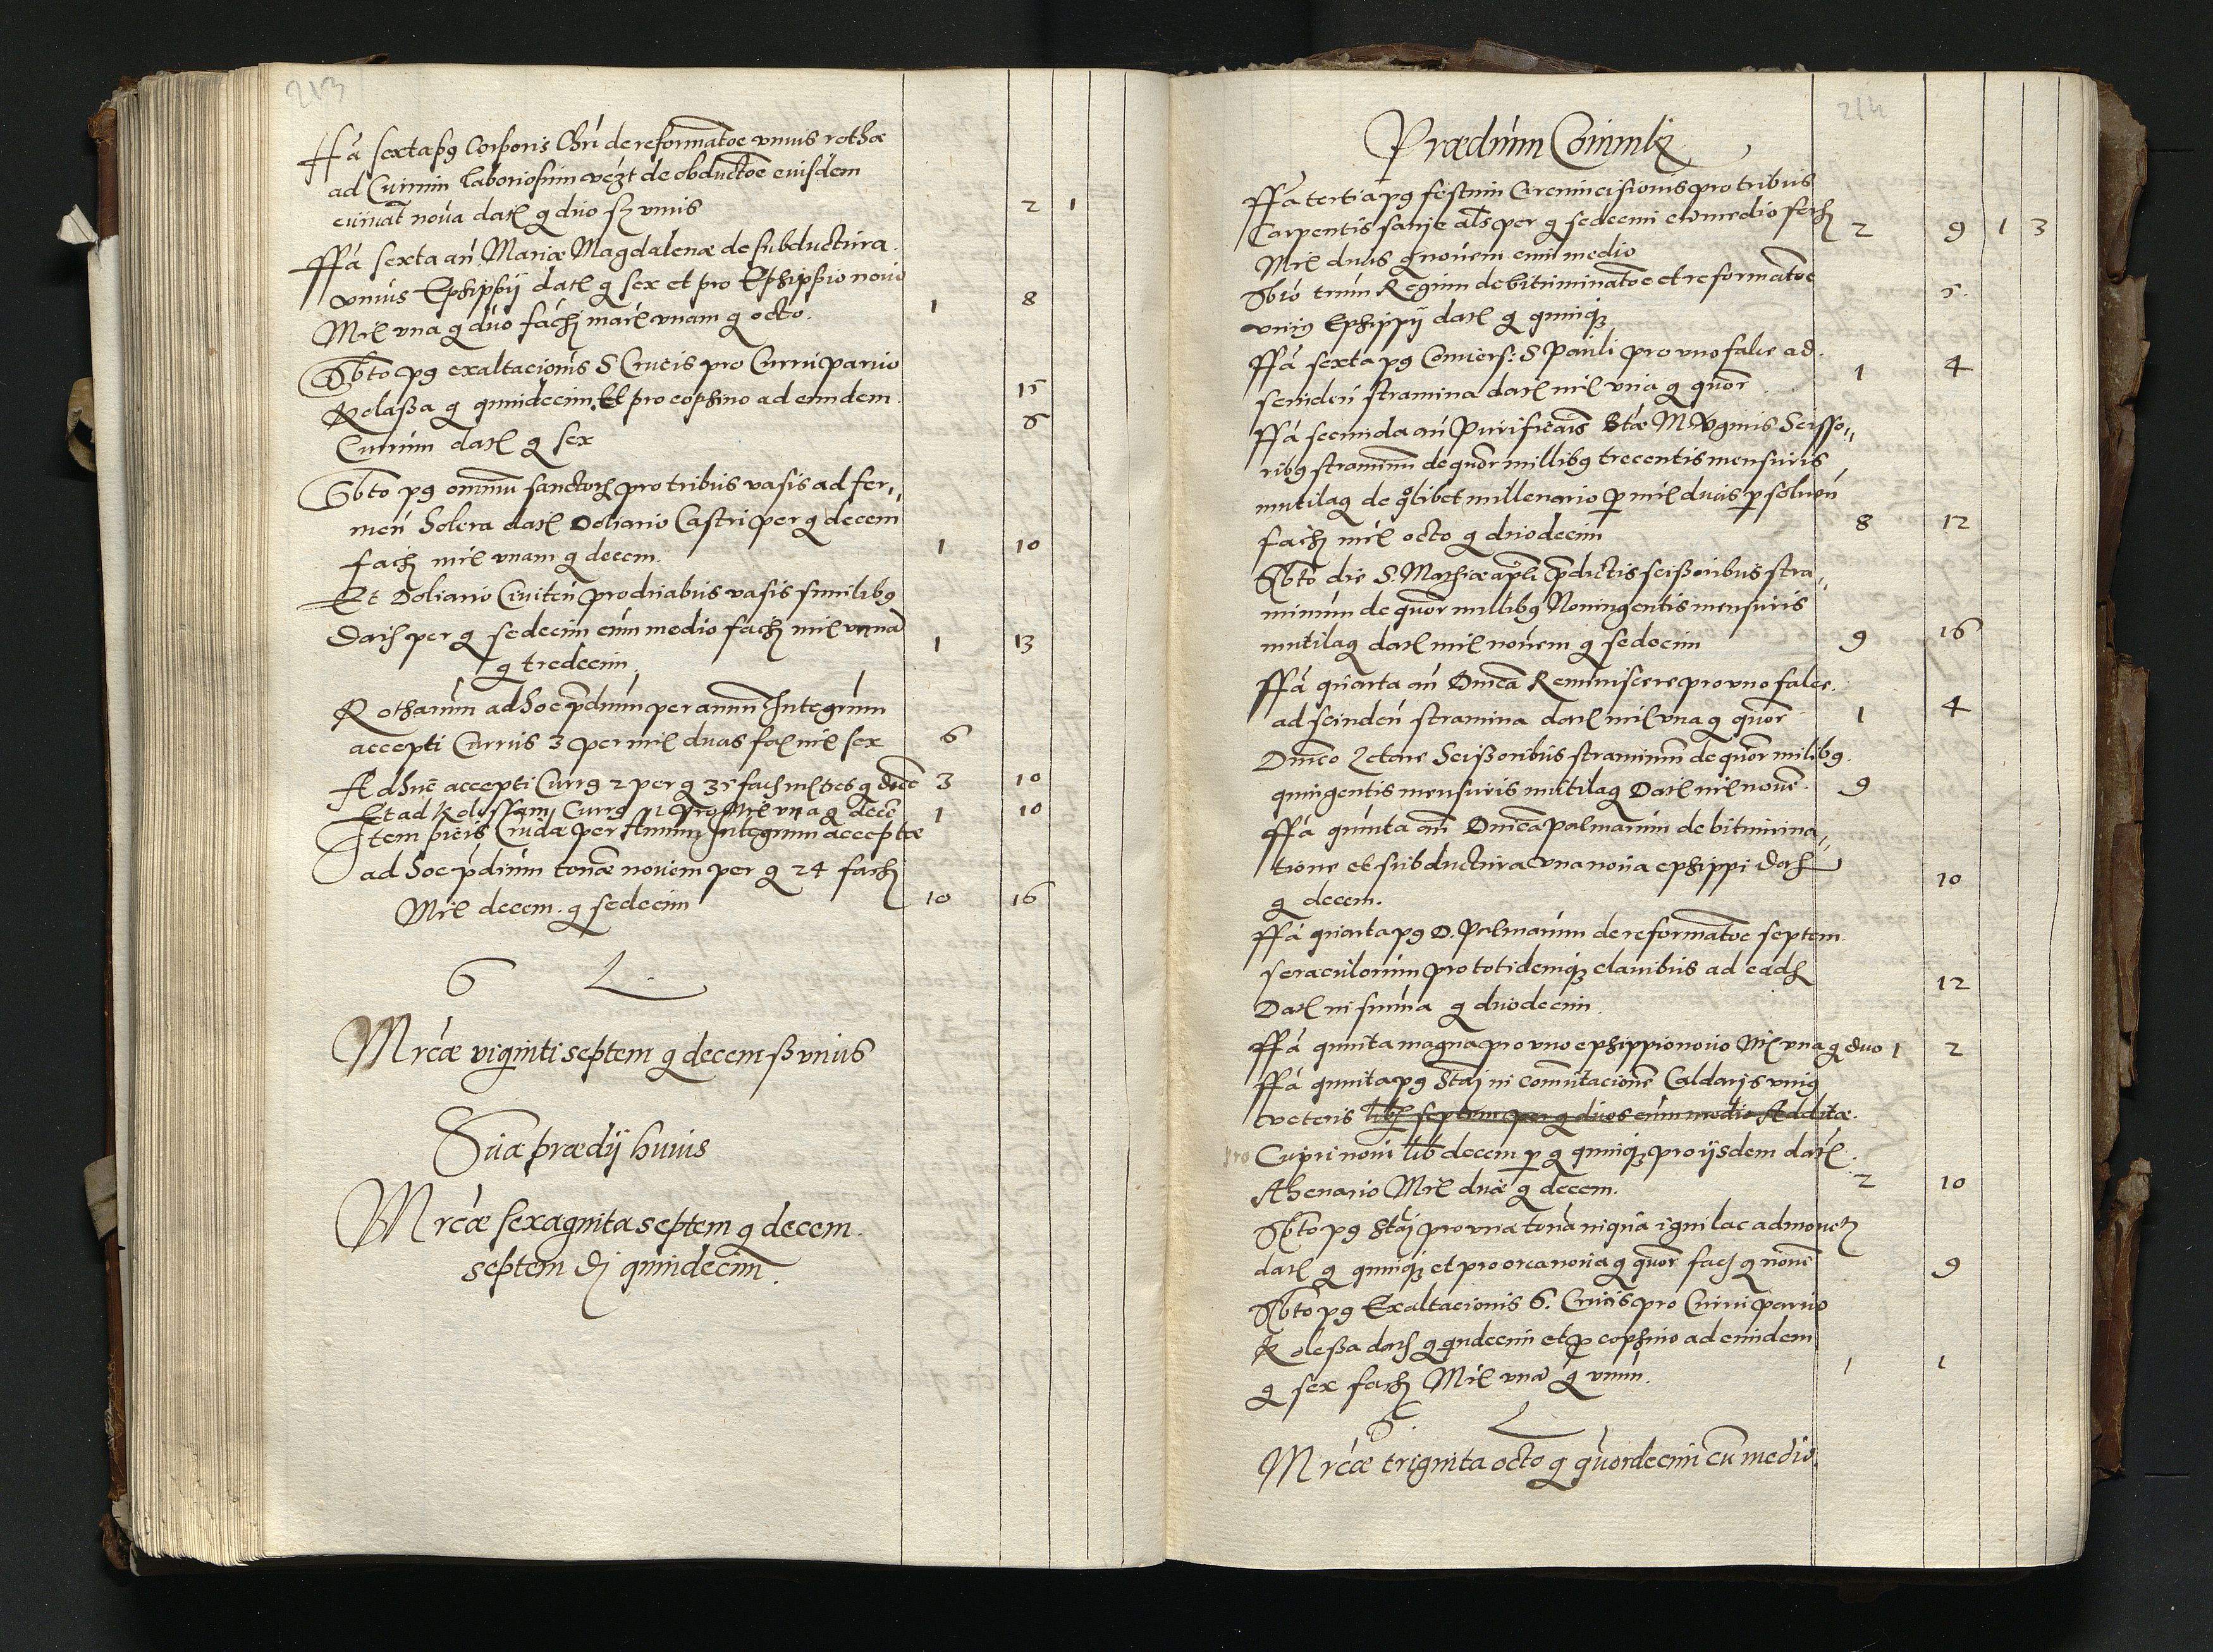 213
ffa sexta pg Corporis Chri de reformatoe vnius rothae
ad Currum laboriosum de obductoe eiusdem
nova datl g duo ſz vnus 2 1
ffa sexta an Mariae Magdalenae de subductura
vnius Ephippÿ datl g sex et pro Ephippio novo
Mrl vna g duo fach marl vnam g octo. 1 8
Sbto pg exaltacionis S Crucis pro Curru parvo
Kolaßa g quindecim, Et pro cophino ad eundem 15
Currum datl g sex 6
Sbto pg omnium sanctorh pro tribus vasis ad fer„
men Solera datl Doliario Castri per g decem
fach mrl vnam g decem. 1 10
Et Doliario Civiten pro duabus vasis similibg
Dath per g sedecim cum medio fach mrl vnna
g tredecim. 1 13
Rotharum ad hoc pdium per annum Integrum
accepti Currus 3 per mrl duas fac mrl sex 6
Adhuc accepti Currg 2 per g 35 fach mrl tres g dece 3 10
Et ad Kolessam Currg pro Mrl vna g dece 1 10
Item picis Crudae per Annum Integrum acceptae
ad hoc pdium tonae novem per g 24 fach
Mrl decem. g sedecim 10 16
6 L.
Mrcae viginti septem g decem ß vnius
Sua praedÿ huius
Mrcae sexaginta septem g decem.
septem quindecim.
214
Praedium
ffa tertia pg festum Circumcisionis pro tribus
Carpentis sanie als per g sedecim cum medio fach 2 9 1 3
Mrl duas g novem cum medio
Sbto trium Regum de bituminatoe et reformatoe
vnig Ephippÿ datl g quinqz 5.
ffa sexta pg Convers: S Pauli pro vno falce ad
scinden stramina datl mrl vna g quor 1 4
ffa secunda an Purificais Btae M Vginis Scisso„
ribg straminum de quor millibg trecentis mensuris
mutilaq de qlibet millenario p mrl duas psoluen
fach mrl octo g duodecim 8 12
Sbto die S. Mathiae apli pdictis scißoribus stra„
minum de quor millibg Noningentis mensuris
mutilaq datl mrl novem g sedecim 9 16
ffa quarta an Dnica Reminiscere pro vno falce
ad scinden stramina datl mrl vna g quor 1 4
Dnico Letare Scißoribus straminum de quor milibg.
quingentis mensuris mutilaq Datl mrl nove. 9
ffa quinta an Dnica palmarum de bitumina„
tione et subductura vna noua ephippi dath
g decem. 10
ffa quarta pg D. Palmarum de reformatoe septem
seraculorum pro totidemqz clavibus ad eadh
Datl in summa g duodecim. 12
ffa quinta magna pro vno ephippio novo Mrl vna g duo 1 2
ffa quinta pg Staj in comutacione Caldarÿs vnig
veteris septem per g duos cum medio Additae.
pro Cupri novi lib decem p g quinqz pro ÿsdem datl
Ahenario Mrl duae g decem. 2 10
Sbto pg Staj pro vna tona in qua igni lac admoveth
datl g quinqz et pro orca nova g quor fach g nove 9
Sbto pg Exaltacionis S. Crucis pro Curru parvo
Koleßa dath g qndecim et p cophino ad eundem
g sex fach Mrl vna g vnum. 1 1
S. L
Mrcae triginta octo g quordecim cu medio.